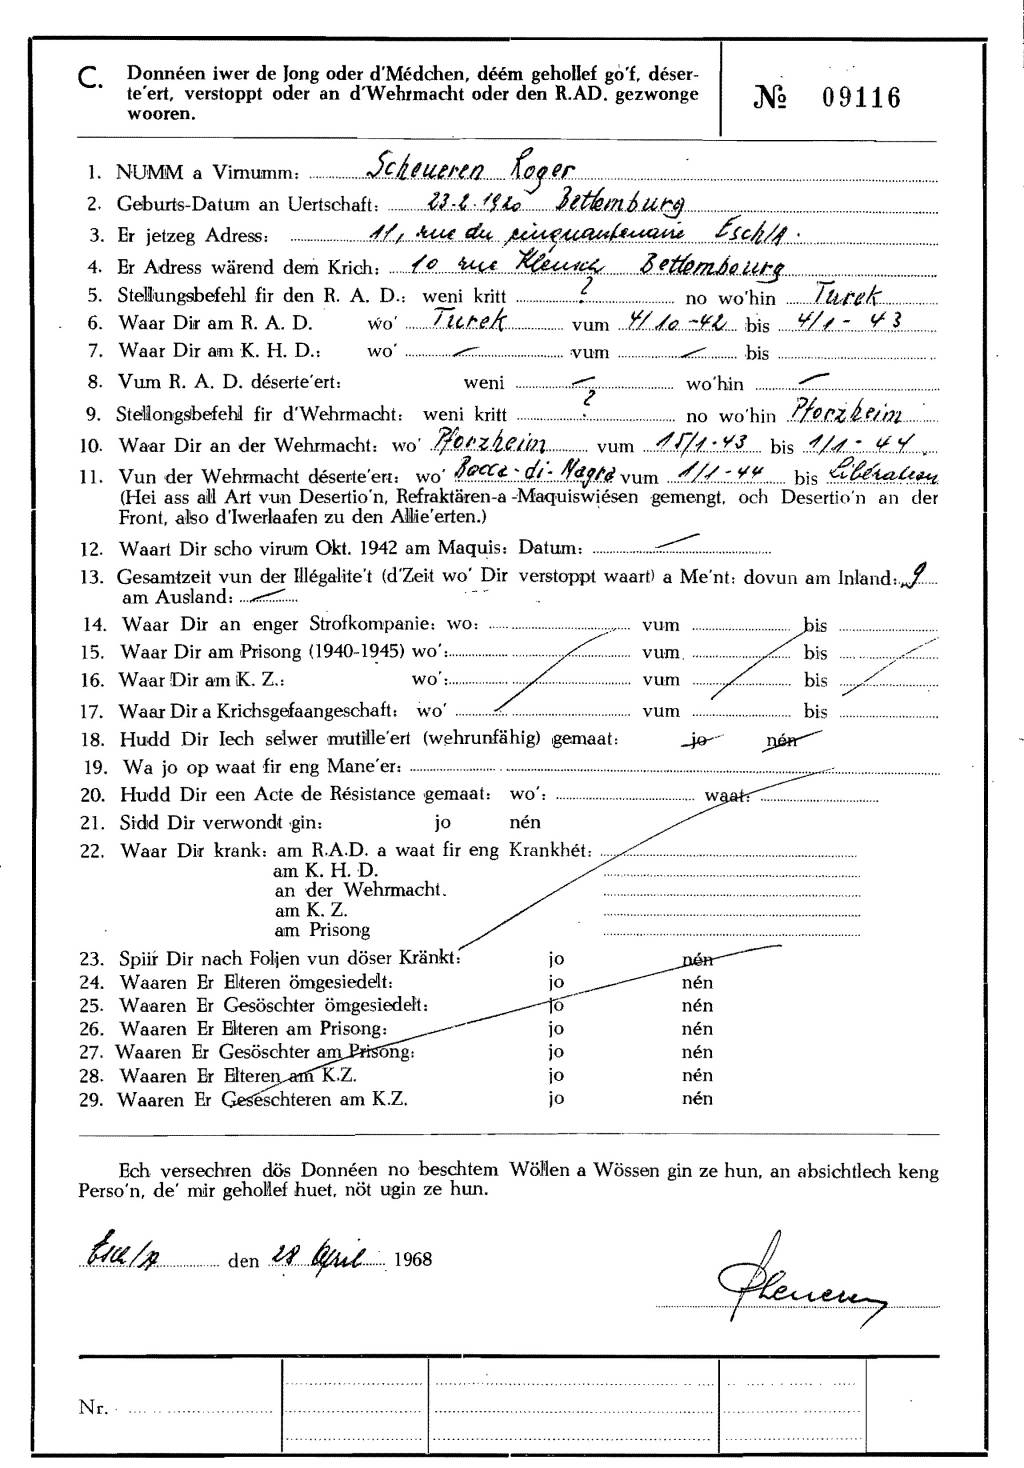 C. Donnéen iwer de Jong oder d'Médchen, déém gehollef go'f, déser-
te'ert, verstoppt oder an d'Wehrmacht oder den R.AD. gezwonge
wooren.
№ 09116
1. NUMM a Virnumm: Scheueren Roger
2. Geburts-Datum an Uertschaft: 23.2.1920 Bettemburg
3. Er jetzeg Adress: 11, rue du cinquantenaire Esch/A.
4. Er Adress wärend dem Krich: 10 rue Klensch Bettembourg
5. Stellungsbefehl fir den R. A. D.: weni kritt ? no wo'hin Turek
6. Waar Dir am R. A. D. wo' Turek vum 4/10-42 bis 4/1-43
7. Waar Dir am K. H. D.: wo' — vum — bis
8. Vum R. A. D. déserte'ert: weni — wo'hin —
9. Stellongsbefehl fir d'Wehrmacht: weni kritt ? no wo'hin Pforzheim
10. Waar Dir an der Wehrmacht: wo' Pforzheim vum 15/1-43 bis 1/1-44
11. Vun der Wehrmacht déserte'ert: wo' Bocca-di-Magra vum 1/1-44 bis Libération
(Hei ass all Art vun Desertio'n, Refraktären-a-Maquiswiésen gemengt, och Desertio'n an der
Front, also d'Iwerlaafen zu den Allie'erten.)
12. Waart Dir scho virum Okt. 1942 am Maquis: Datum: —
13. Gesamtzeit vun der Illégalite't (d'Zeit wo' Dir verstoppt waart) a Me'nt: dovun am Inland: 9
am Ausland: —
14. Waar Dir an enger Strofkompanie: wo: vum bis
15. Waar Dir am Prisong (1940-1945) wo': vum bis
16. Waar Dir am K. Z.: wo': vum bis
17. Waar Dir a Krichsgefaangeschaft: wo' vum bis
18. Hudd Dir Iech selwer mutille'ert (wehrunfähig) gemaat: jo nén
19. Wa jo op waat fir eng Mane'er:
20. Hudd Dir een Acte de Résistance gemaat: wo': waat:
21. Sidd Dir verwondt gin: jo nén
22. Waar Dir krank: am R.A.D. a waat fir eng Krankhét:
am K. H. D.
an der Wehrmacht.
am K. Z.
am Prisong
23. Spiir Dir nach Foljen vun döser Kränkt: jo nén
24. Waaren Er Elteren ömgesiedelt: jo nén
25. Waaren Er Gesöschter ömgesiedelt: jo nén
26. Waaren Er Elteren am Prisong: jo nén
27. Waaren Er Gesöschter am Prisong: jo nén
28. Waaren Er Elteren am K.Z. jo nén
29. Waaren Er Geseschteren am K.Z. jo nén
Ech versechren dös Donnéen no beschtem Wöllen a Wössen gin ze hun, an absichtlech keng
Perso'n, de' mir gehollef huet, nöt ugin ze hun.
Esch/A den 28 April 1968
Scheueren
Nr.